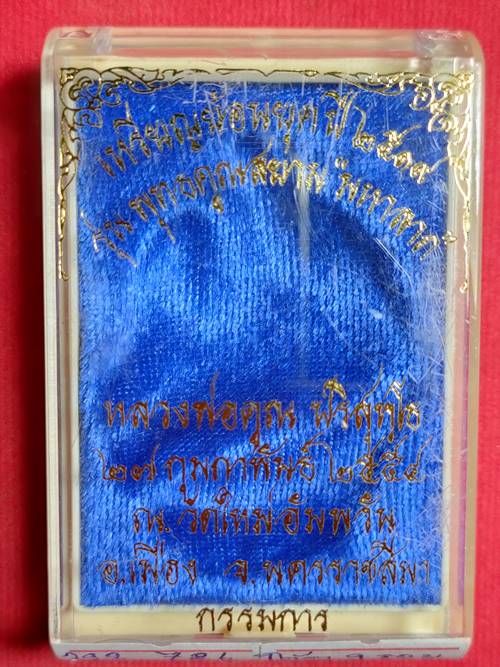 เหรียญย้อนยุค ปี ๒๕๑๙
รุ่น พุทธคูณสยาม มหาลาภ
หลวงพ่อคูณ ปริสุทฺโธ
๒๗ กุมภาพันธ์ ๒๕๕๔
ณ. วัดใหม่อัมพวัน
อ.เมือง จ.นครราชสีมา
กรรมการ